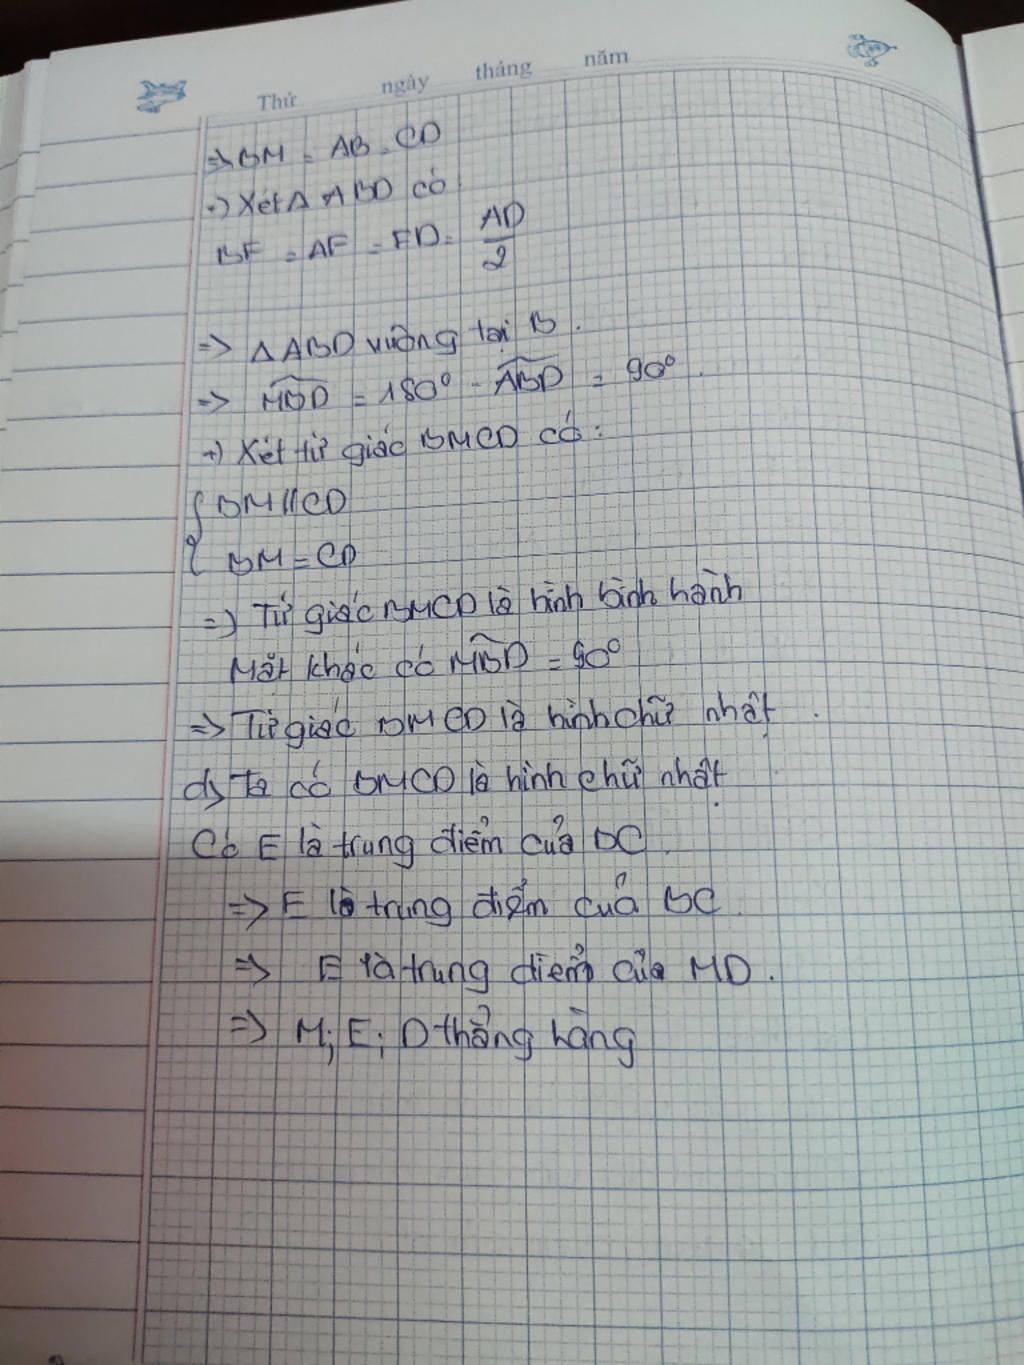 Thứ ngày tháng năm
=> BM = AB = CD
+) Xét Δ ABD có
BF = AF = FD = AD/2
=> Δ ABD vuông tại B.
=> MBD = 180° - ABD = 90°.
+) Xét tứ giác BMCD có:
{ BM // CD
BM = CD
=> Tứ giác BMCD là hình bình hành
Mặt khác có MBD = 90°
=> Tứ giác BMCD là hình chữ nhật.
d, Ta có BMCD là hình chữ nhật
Có E là trung điểm của BC.
=> E là trung điểm của BC.
=> E là trung điểm của MD.
=> M; E; D thẳng hàng